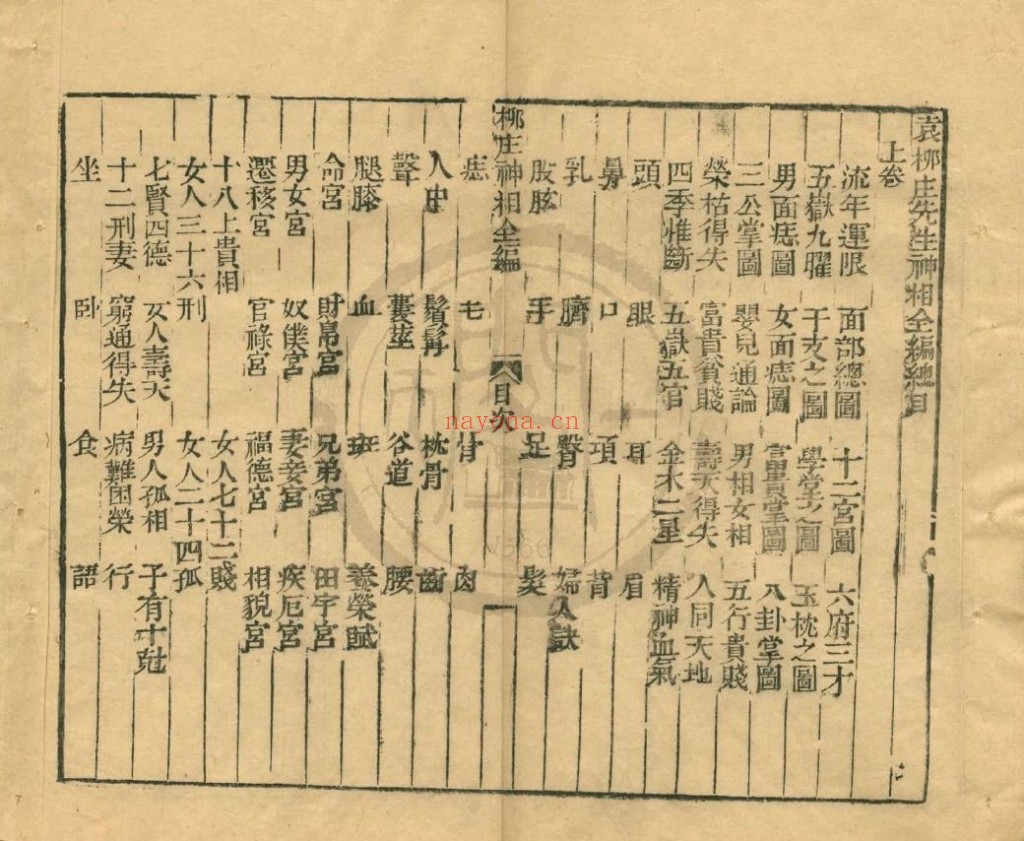 袁柳庄先生神相全編總目
上卷
流年運限 面部總圖 十二宮圖 六府三才
五嶽九曜 干支之圖 學堂之圖 玉枕之圖
男面痣圖 女面痣圖 富貴掌圖 八卦掌圖
三公掌圖 嬰兒通論 男相女相 五行貴賤
榮枯得失 富貴貧賤 壽夭得失 人同天地
四季惟斷 五嶽五官 金木二星 精神血氣
頭 眼 耳 眉
鼻 口 項 背
乳 臍 臀 婦人訣
股肱 手 足 髮
柳庄神相全編 目次
痣 毛 骨 肉
人中 鬚髯 枕骨 齒
聲 囊莖 谷道 腰
腿膝 血 班 養榮賦
命宮 財帛宮 兄弟宮 田宅宮
男女宮 奴僕宮 妻妾宮 疾厄宮
遷移宮 官祿宮 福德宮 相貌宮
十八上貴相 女人七十二賤
女人三十六刑 女人二十四孤
七賢四德 女人壽夭 男人孤相 子有十尅
十二刑妻 窮通得失 病難困榮 行
坐 卧 食 語
nayona.cn
1666